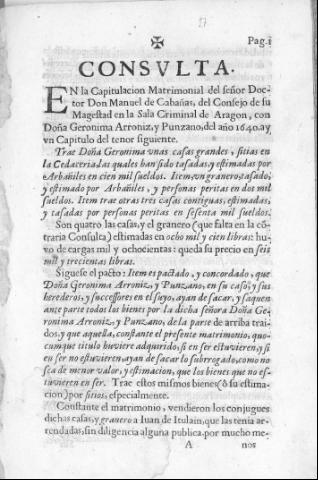 27
✠ Pag.1
CONSVLTA.
EN la Capitulacion Matrimonial del señor Doc-
tor Don Manuel de Cabañas, del Consejo de su
Magestad en la Sala Criminal de Aragon, con
Doña Geronima Arroniz, y Punzano, del año 1640. ay
vn Capitulo del tenor siguiente.
Trae Doña Geronima vnas casas grandes, sitias en
la Cedaceria, las quales han sido tasadas, y estimadas por
Arbañiles en cien mil sueldos. Item, vn granero, tasado,
y estimado por Arbañiles, y personas peritas en dos mil
sueldos. Item trae otras tres casas contiguas, estimadas,
y tasadas por personas peritas en sesenta mil sueldos.
Son quatro las casas, y el granero (que falta en la cõ-
traria Consulta) estimadas en ocho mil y cien libras: hu-
vo de cargas mil y ochocientas: queda su precio en seis
mil y trecientas libras.
Siguese el pacto: Item es pactado, y concordado, que
Doña Geronima Arroniz, y Punzano, en su caso, y sus
herederos, y successores en el suyo, ayan de sacar, y saquen
ante parte todos los bienes por la dicha señora Doña Ge-
ronima Arroniz, y Punzano, de la parte de arriba trai-
dos, y que aquella, constante el presente matrimonio, quo-
cumque titulo huviere adquirido, si en ser estuvieren, y si
en ser no estuvieren, ayan de sacar lo subrrogado, como no
sea de menor valor, y estimacion, que los bienes que no es-
tuvieren en ser. Trae estos mismos bienes (ò su estima-
cion) por sitios, especialmente.
Constante el matrimonio, vendieron los conjuges
dichas casas, y granero a Iuan de Itulain, que las tenia ar-
rendadas, sin diligencia alguna publica, por mucho me-
A nos